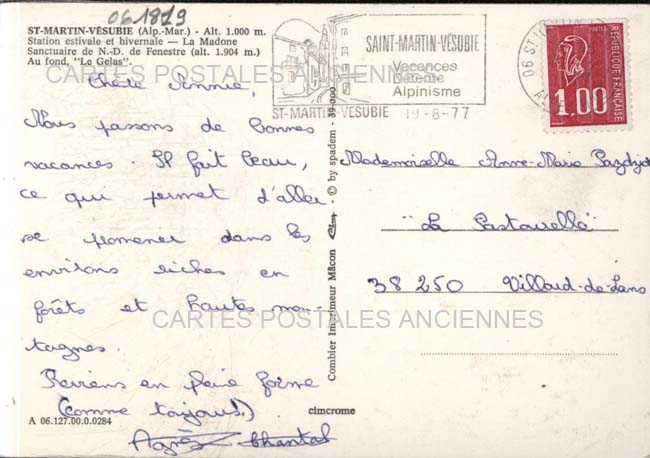 061819
ST-MARTIN-VÉSUBIE (Alp.-Mar.) - Alt. 1.000 m.
Station estivale et hivernale — La Madone
Sanctuaire de N.-D. de Fenestre (alt. 1.904 m.)
Au fond, "Le Gelas".
CARTES POSTALES ANCIENNES
Chère Annie,
Nous passons de bonnes
vacances. Il fait beau,
ce qui permet d'aller
se promener dans les
environs riches en
forêts et hautes mon-
tagnes.
Reviens en pleine forme
(comme toujours!)
Agnès Chantal
A 06.127.00.0.0284
cimcrome
Combier Imprimeur Mâcon Cim © by spadem - 39-000
SAINT-MARTIN-VÉSUBIE
Vacances
Détente
Alpinisme
ST-MARTIN-VÉSUBIE 19-8-77
06 ST
RÉPUBLIQUE FRANÇAISE
POSTES
1,00
Mademoiselle Anne-Marie
"La Pastourelle"
38 250 Villard-de-Lans
CARTES POSTALES ANCIENNES